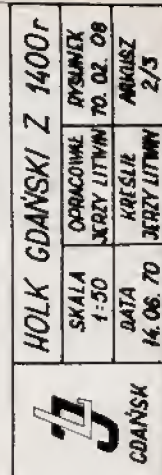 HOLK GDAŃSKI Z 1400r
SKALA
1:50
OPRACOWAŁ
JERZY LITWIN
RYSUNEK
70. 02. 08
DATA
14. 06. 70
KREŚLIŁ
JERZY LITWIN
ARKUSZ
2/3
GDAŃSK